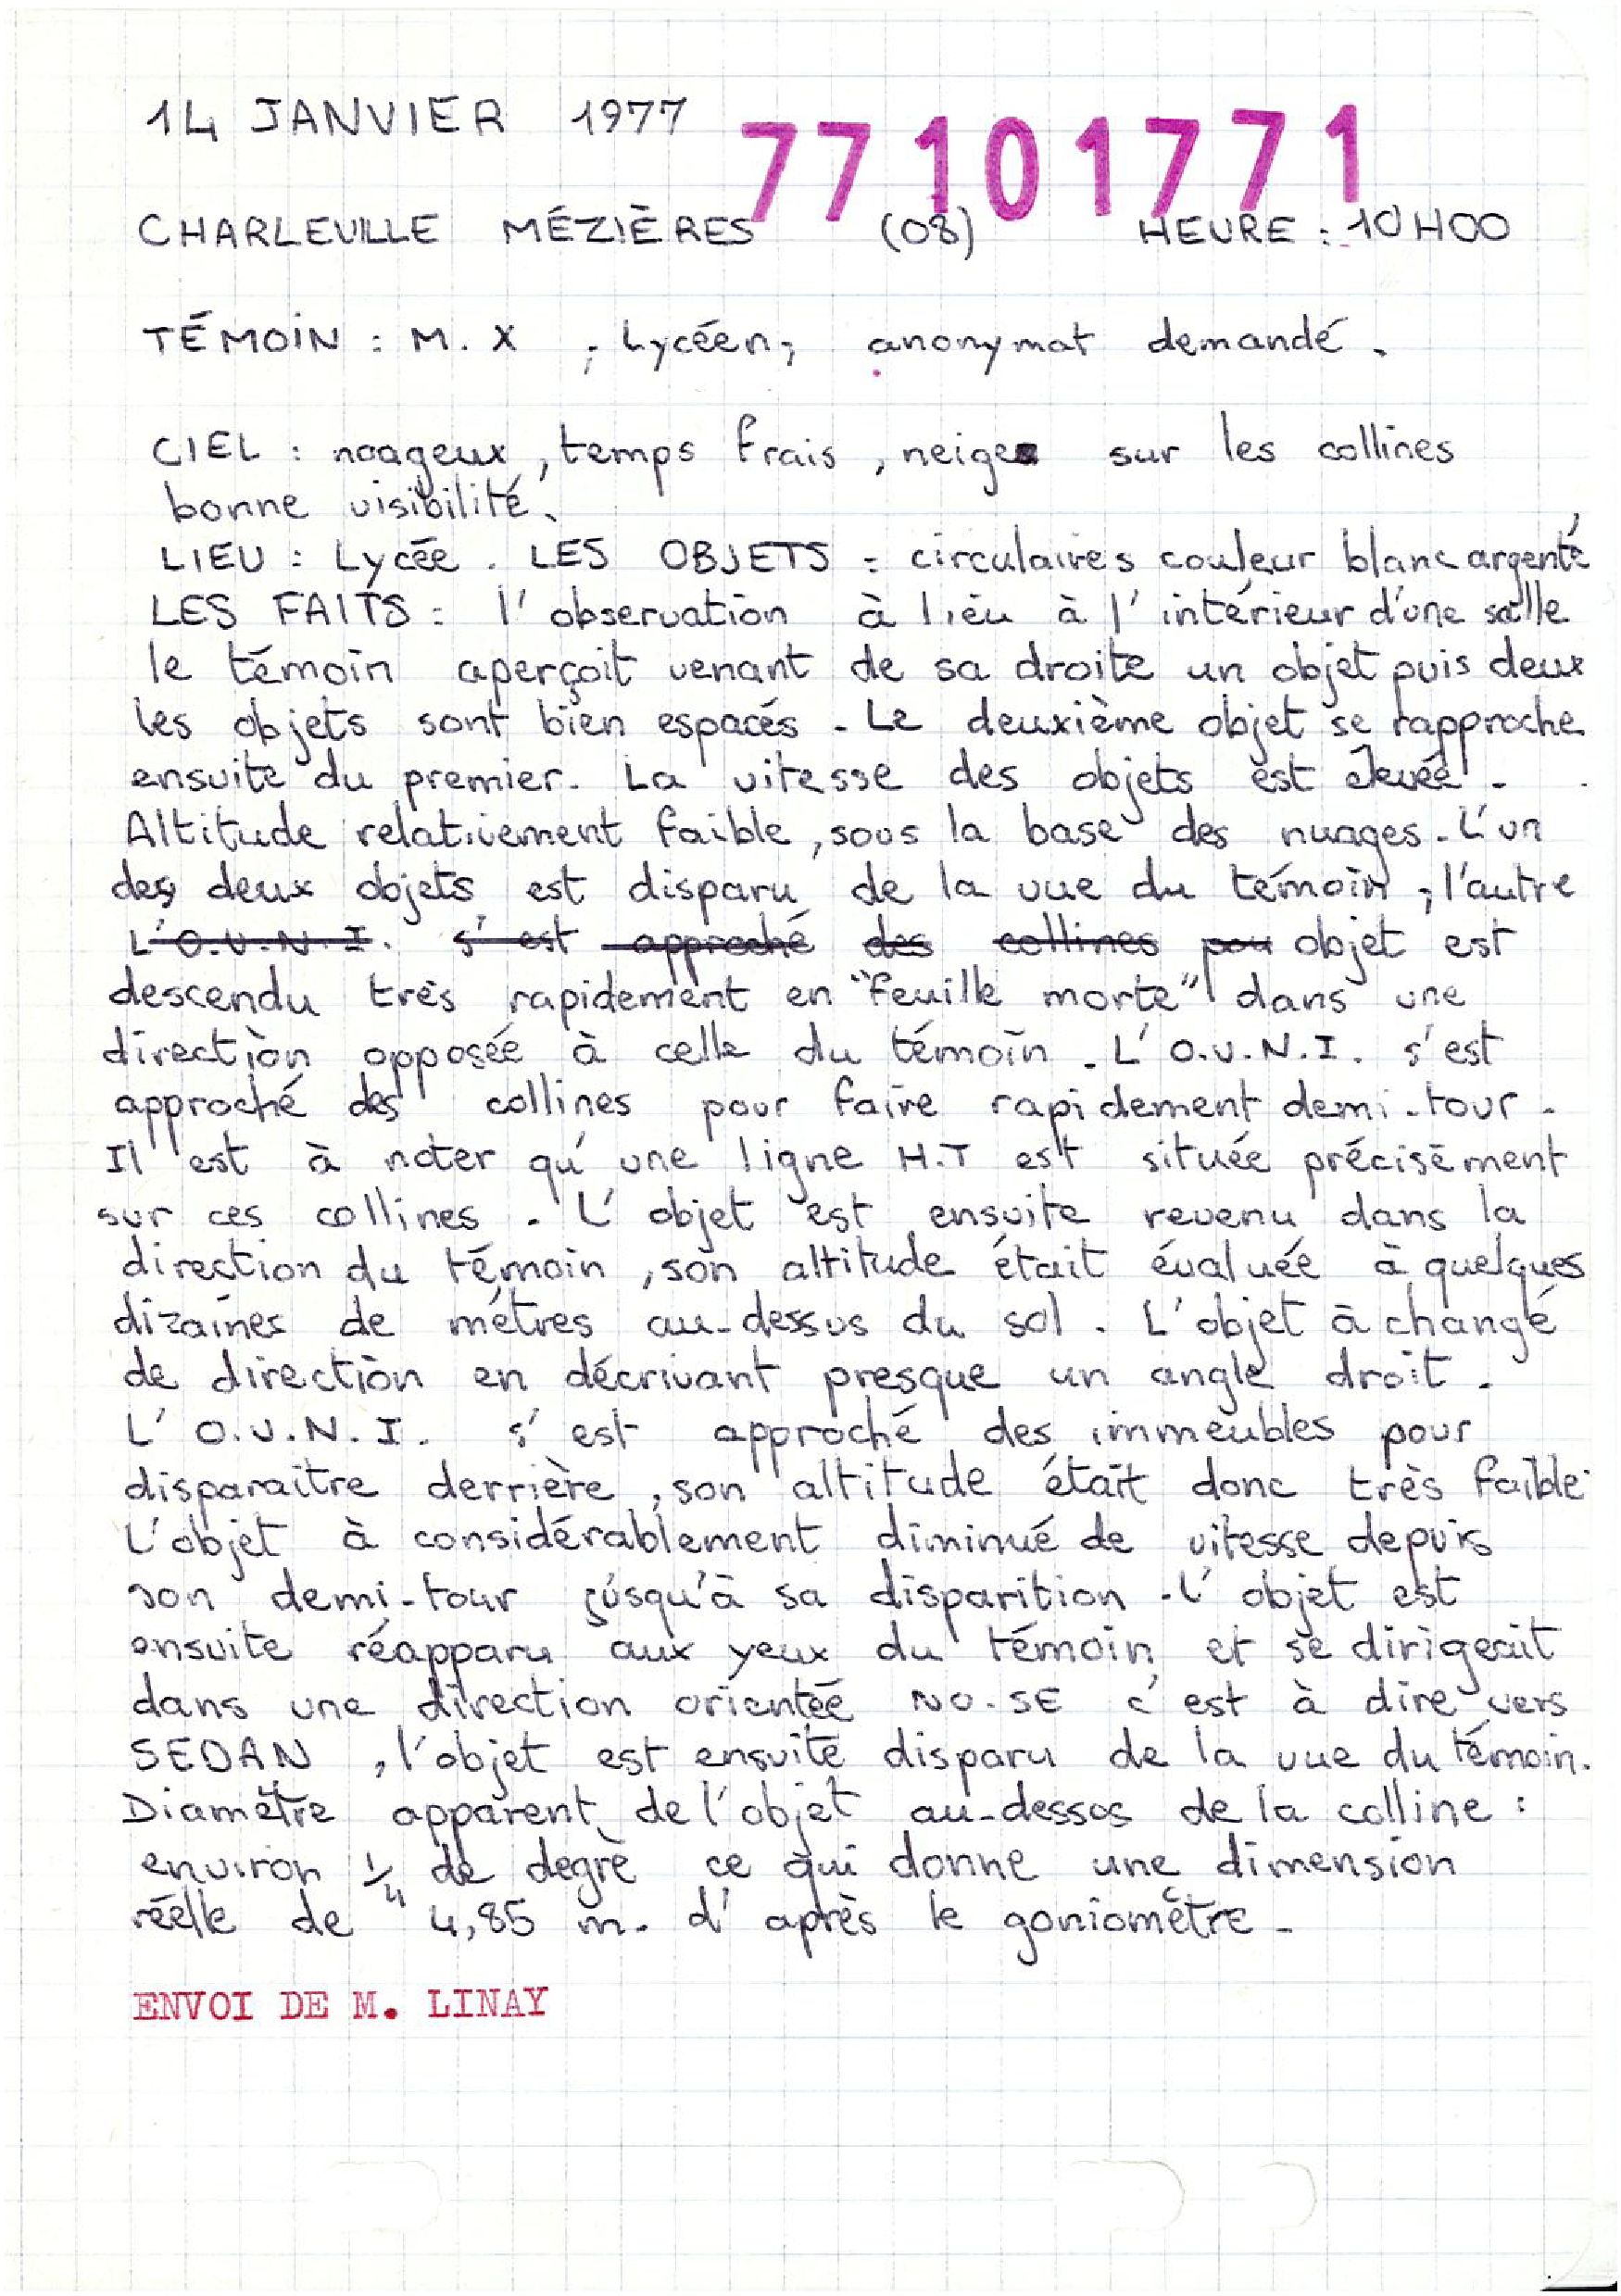 14 JANVIER 1977
77101771
CHARLEVILLE MÉZIÈRES (08) HEURE : 10H00
TÉMOIN : M. X ; Lycéen, anonymat demandé.
CIEL : nuageux, temps frais, neige sur les collines
bonne visibilité.
LIEU : Lycée. LES OBJETS : circulaires couleur blanc argenté
LES FAITS : l'observation à lieu à l'intérieur d'une salle
le témoin aperçoit venant de sa droite un objet puis deux
les objets sont bien espacés - Le deuxième objet se rapproche
ensuite du premier. La vitesse des objets est élevée -
Altitude relativement faible, sous la base des nuages - L'un
des deux objets est disparu de la vue du témoin, l'autre
L'O.V.N.I. s'est approché des collines pou objet est
descendu très rapidement en "feuille morte" dans une
direction opposée à celle du témoin - L'O.V.N.I. s'est
approché des collines pour faire rapidement demi-tour -
Il est à noter qu'une ligne H.T est située précisément
sur ces collines. L'objet est ensuite revenu dans la
direction du témoin, son altitude était évaluée à quelques
dizaines de mètres au-dessus du sol. L'objet à changé
de direction en décrivant presque un angle droit -
L'O.V.N.I. s'est approché des immeubles pour
disparaitre derrière, son altitude était donc très faible.
L'objet à considérablement diminué de vitesse depuis
son demi-tour jusqu'à sa disparition - L'objet est
ensuite réapparu aux yeux du témoin et se dirigeait
dans une direction orientée NO-SE c'est à dire vers
SEDAN, l'objet est ensuite disparu de la vue du témoin.
Diamètre apparent de l'objet au-dessus de la colline :
environ 1/4 de degrè ce qui donne une dimension
réelle de 4,85 m. d'après le goniomètre -
ENVOI DE M. LINAY